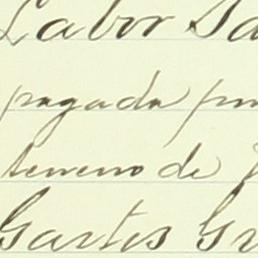 Labor Sa
pagada por
terreno de
Gastos Gr